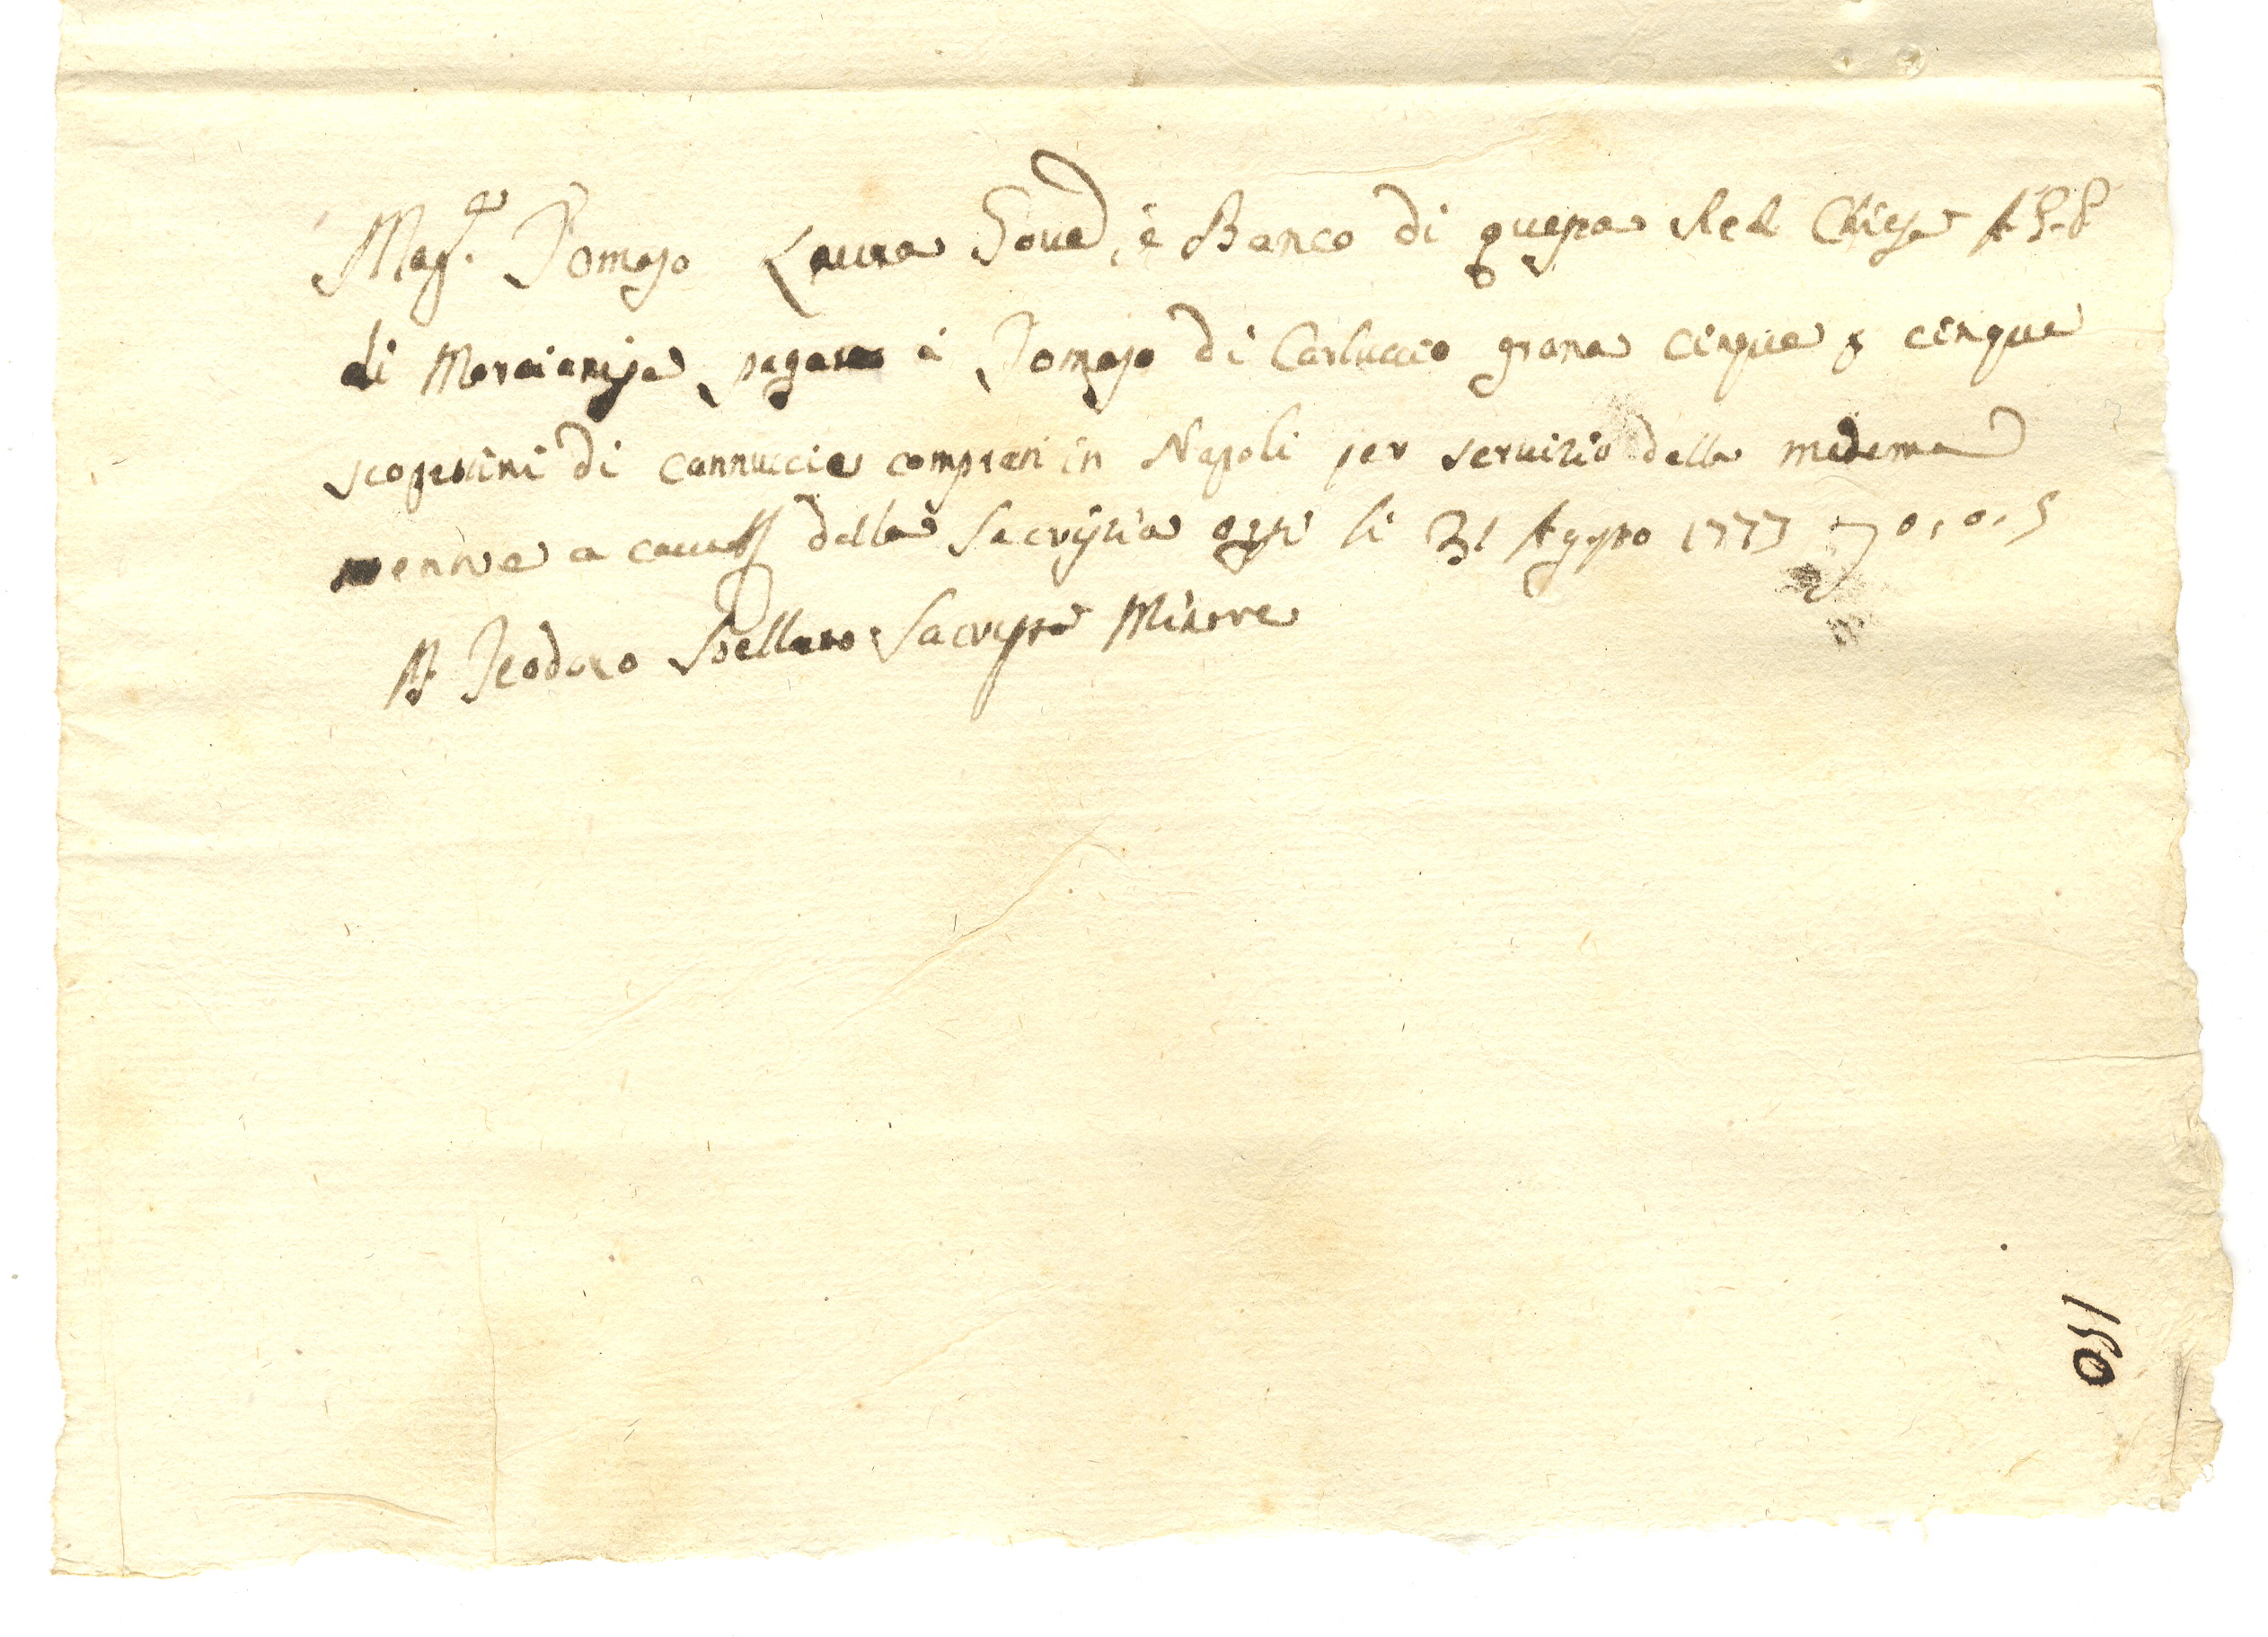 Mag.co Tomaso Laura Gover è Banco di questa Rel Chiesa A. G. P.
di Marcianise pagate à Tomaso di Carluccio grana cinque p cinque
scopettini di cannuccie comprati in Napoli per servizio della medema
a della Sacristia oggi li 31 Agosto 1773 0, 0, 5
Teodoro Sacrista Minore
150